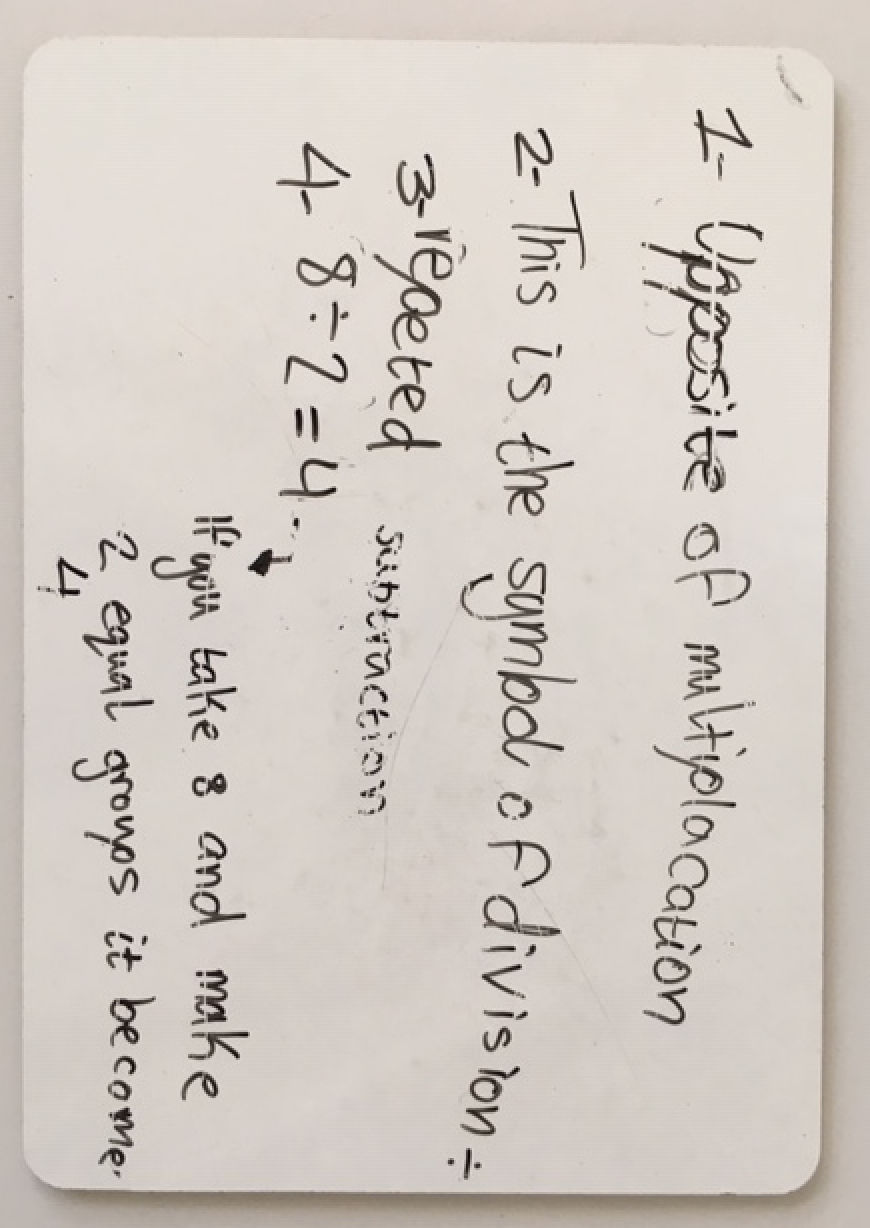 1- Upposite of multiplacation
2- This is the symbol of division ÷
3- repeted subtruction
4- 8 ÷ 2 = 4
If you take 8 and make
2 equal groups it become
4